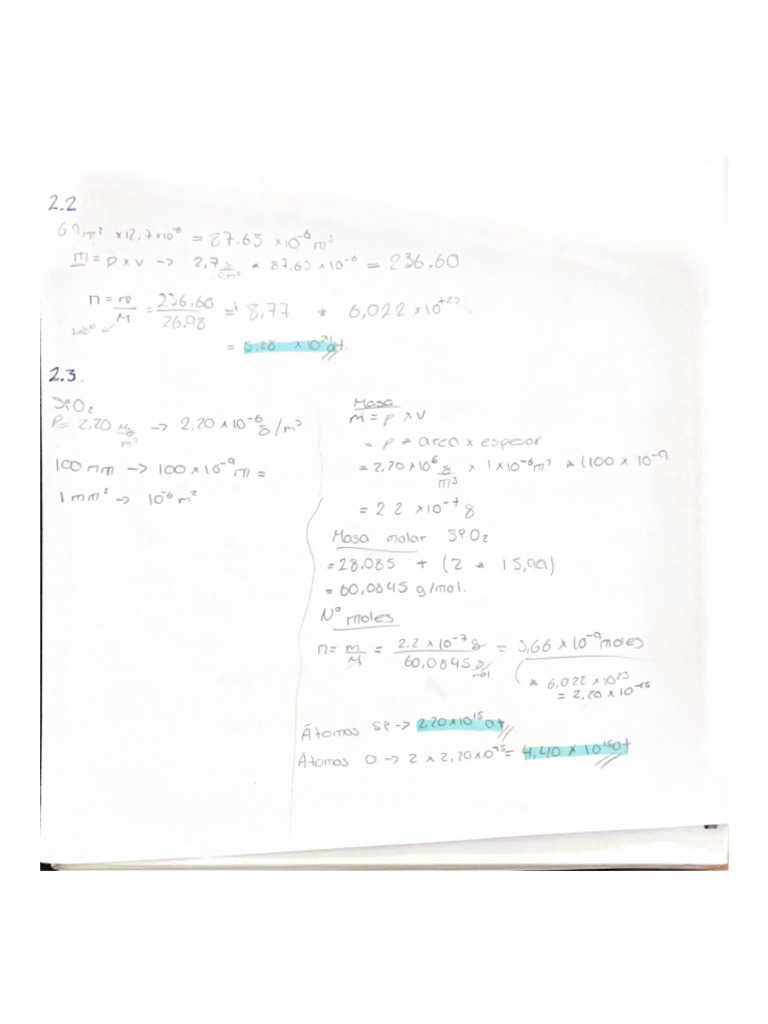 2.2
69 m² × 12,7 × 10⁻⁶ = 87.63 × 10⁻⁶ m³
m = ρ × v → 2,7 g/cm³ * 87,63 × 10⁻⁶ = 236.60
n = m/M = 236.60/26.98 = 8,77 * 6,022 × 10⁺²³
= 5.28 × 10²⁴ at.
2.3.
SiO₂
ρ = 2,20 Mg/m³ → 2.20 × 10⁻⁶ g/m³
100 nm → 100 × 10⁻⁹ m =
1 mm² → 10⁻⁶ m²
Masa
m = ρ × v
= ρ * area × espesor
= 2,20 × 10⁶ g/m³ × 1 × 10⁻⁶ m² * (100 × 10⁻⁹
= 2.2 × 10⁻⁷ g
Masa molar SiO₂
= 28.085 + (2 * 15,99)
= 60,0845 g/mol.
Nº moles
n = m/M = 2.2 × 10⁻⁷ g/60,0845 g/mol = 3,66 × 10⁻⁹ moles
* 6,022 × 10²³
= 2,20 × 10⁻¹⁵
Átomos Si → 2,20 × 10¹⁵ at
Átomos O → 2 × 2,20 × 10⁻¹⁵ = 4,40 × 10¹⁵ at